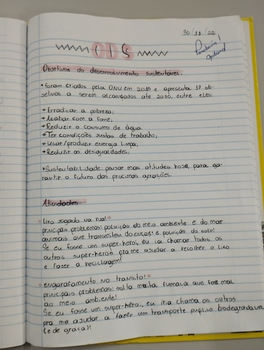 30/11/22
ODS
Objetivos do desenvolvimento sustentáveis.
• Foram criados pela ONU em 2015 e apresenta 17 ob-
jetivos a serem alcançados até 2030, entre eles:
• Erradicar a pobreza,
• Acabar com a fome,
• Reduzir o consumo de água
• Ter condições justas de trabalho,
• Usar/produzir energia limpa,
• Reduzir as desigualdades.
• Sustentabilidade: pensar nas atitudes hoje para ga-
rantir o futuro das próximas gerações.
Atividades
Lixo jogado na rua:
principais problemas: poluição do meio ambiente e do mar,
animais que transmitem doenças e poluição do solo!
Se eu fosse um super-herói, eu ia chamar todos os
outros super-heróis pra me ajudar a recolher o lixo
e fazer a reciclagem!
Engarrafamento no trânsito:
principais problemas: solta muita fumaça que faz mal
ao meio ambiente!
Se eu fosse um super-herói, eu ia chama os outros
pra me ajudar a fazer um transporte público biodegradável
(e de graça)!